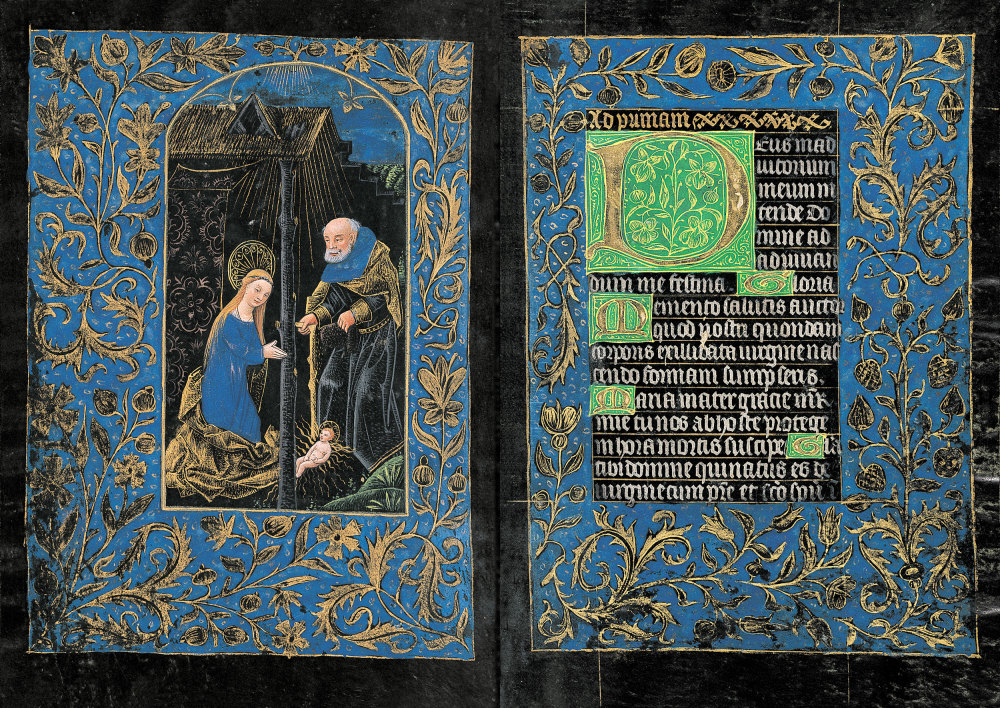 Ad primam
Deus in ad
iutorium
meum in
tende Do
mine ad
adiuuan
dum me festina. Gloria
Memento salutis auctor
quod nostri quondam
corporis ex illibata uirgine nas
cendo formam sumpseris.
Maria mater gracie mr̄
mie tu nos ab hoste protege
in hora mortis suscipe. Gla
tibi domine qui natus es de
uirgine cum pr̄e et sc̄o spū